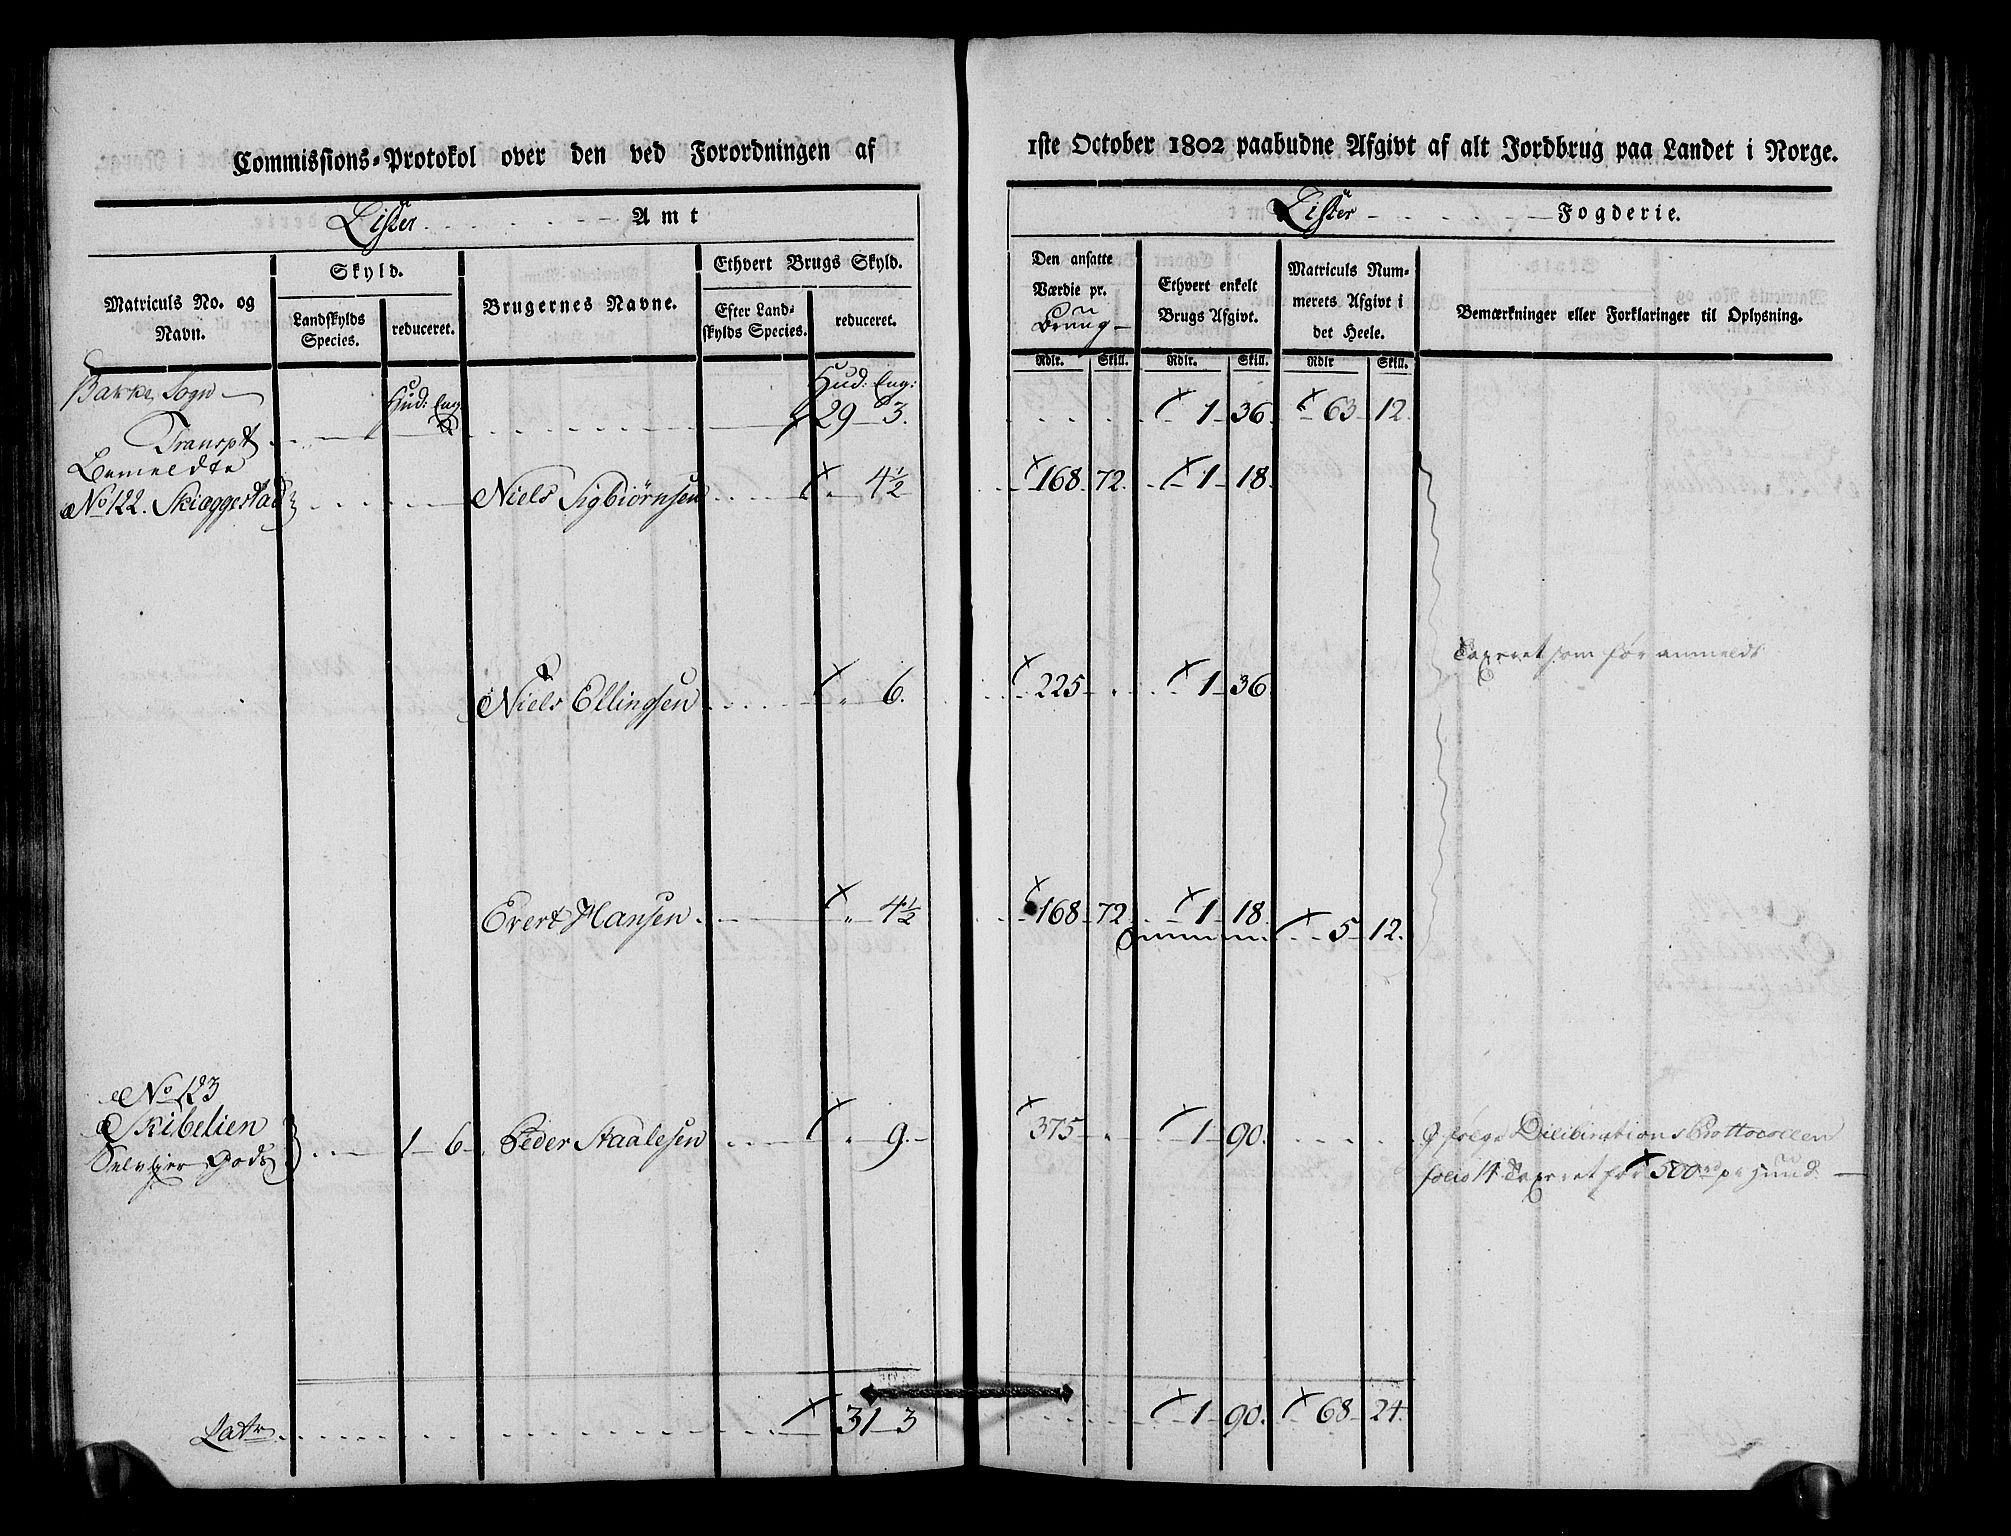 Commissions-Protokol over den ved Forordningen af
Lister Amt
Matriculs No. og Navn.
Skyld.
Landskylds Species.
reduceret.
Brugernes Navne.
Ethvert Brugs Skyld.
Efter Landskylds Species.
reduceret.
Bakke Sogn
Hud: Eng:
Hud: Eng:
Transpt 29 3.
No 122. Skiæggestad Niels Sigbiørnsen 4½
Niels Ellingsen 6.
Evert Hansen 4½
No 123
Skibelien 1 6 Peder Staalesen 9.
Selveier Gods
Latr 31 3
1ste October 1802 paabudne Afgivt af alt Jordbrug paa Landet i Norge.
Lister Fogderie.
Den ansatte Værdie pr. Bruug
Ethvert enkelt Brugs Afgivt.
Matriculs Nummerets Afgivt i det Heele.
Bemærkninger eller Forklaringer til Oplysning.
Rdlr. Skill. Rdlr. Skill. Rdlr Skill.
1 36 63 12.
168 72. 1 18.
Taxeret som før anmeldt
225 1 36
168 72. 1 18.
5 12.
375 1 90. Ifølge Deliberations Prottocollen
folio 14 Taxeret for 500 rd pr Huud
1 90. 68 24.